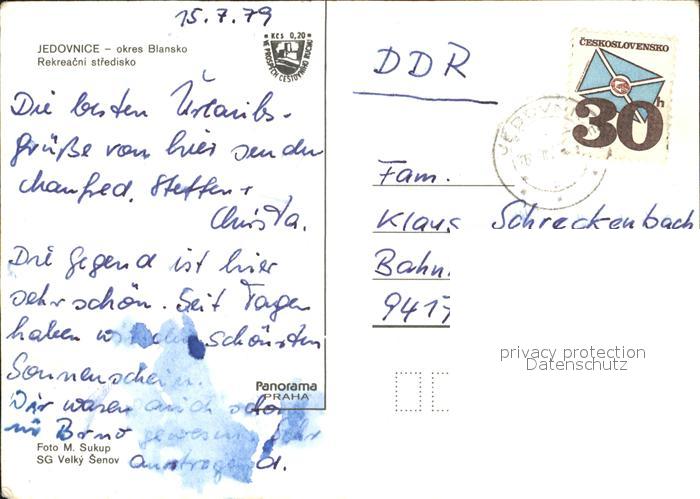 15.7.79
JEDOVNICE – okres Blansko
Rekreační středisko
Kčs 0,20
VE PROSPĚCH CESTOVNÍHO RUCHU
Die besten Urlaubs-
grüße von hier senden
Manfred, Steffen +
Christa.
Die Gegend ist hier
sehr schön. Seit Tagen
haben wir den schönsten
Sonnenschein.
Wir waren auch schon
in Brno gewesen. Sehr
anstrengend.
Foto M. Sukup
SG Velký Šenov
Panorama
PRAHA
DDR
ČESKOSLOVENSKO
30h
JEDOVNICE
Fam.
Klaus Schreckenbach
Bahn
9417
privacy protection
Datenschutz